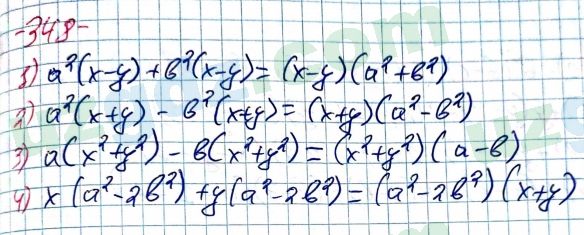 -348-
1) a²(x-y)+b²(x-y)=(x-y)(a²+b²)
2) a²(x+y)-b²(x+y)=(x+y)(a²-b²)
3) a(x²+y²)-b(x²+y²)=(x²+y²)(a-b)
4) x(a²-2b²)+y(a²-2b²)=(a²-2b²)(x+y)